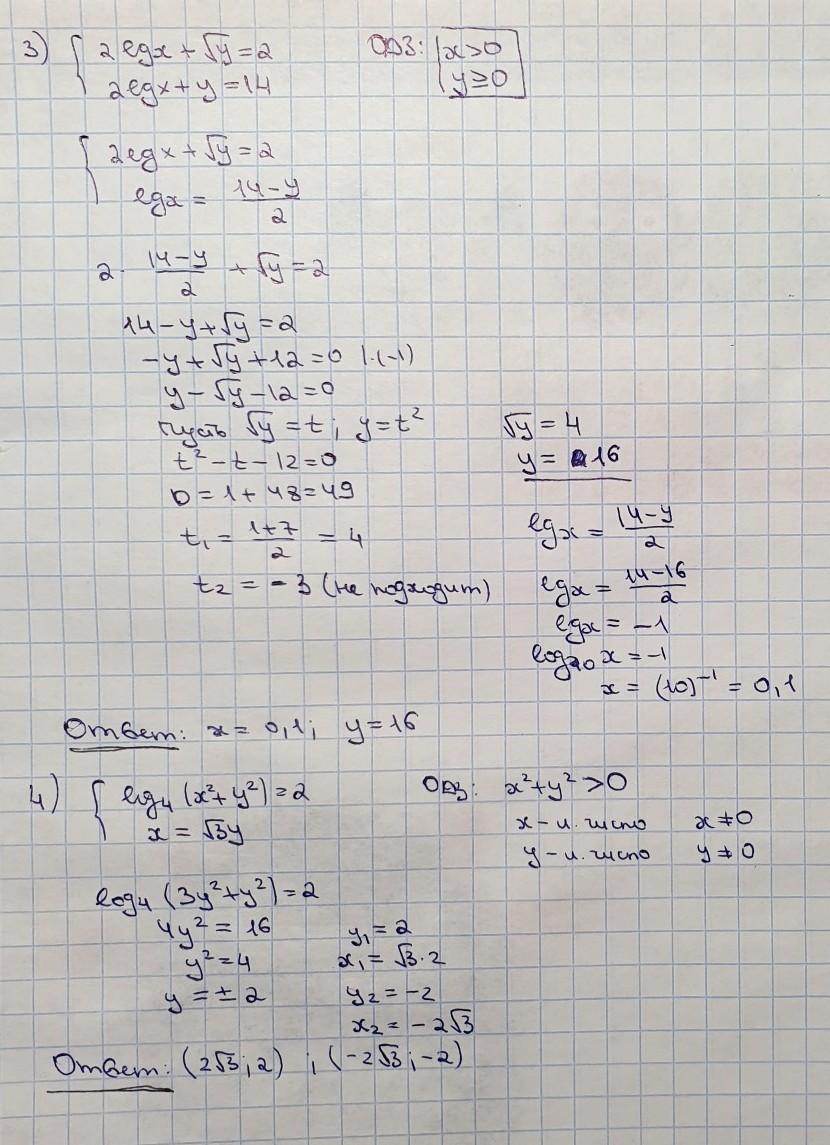 3) { 2lgx + √y = 2 ОДЗ: x>0
2lgx + y = 14 y≥0
{ 2lgx + √y = 2
lgx = (14-y)/2
2· (14-y)/2 + √y = 2
14 - y + √y = 2
-y + √y + 12 = 0 |·(-1)
y - √y - 12 = 0
Пусть √y = t; y = t²
t² - t - 12 = 0
D = 1 + 48 = 49
t₁ = (1+7)/2 = 4
t₂ = -3 (не подходит)
√y = 4
y = 16
lgx = (14-y)/2
lgx = (14-16)/2
lgx = -1
log₁₀ x = -1
x = (10)⁻¹ = 0,1
Ответ: x = 0,1; y = 16
4) { log₄ (x²+y²) = 2 ОДЗ: x²+y² > 0
x = √3y x - л. число x ≠ 0
y - л. число y ≠ 0
log₄ (3y²+y²) = 2
4y² = 16
y² = 4
y = ± 2
y₁ = 2
x₁ = √3·2
y₂ = -2
x₂ = -2√3
Ответ: (2√3; 2) ; (-2√3; -2)